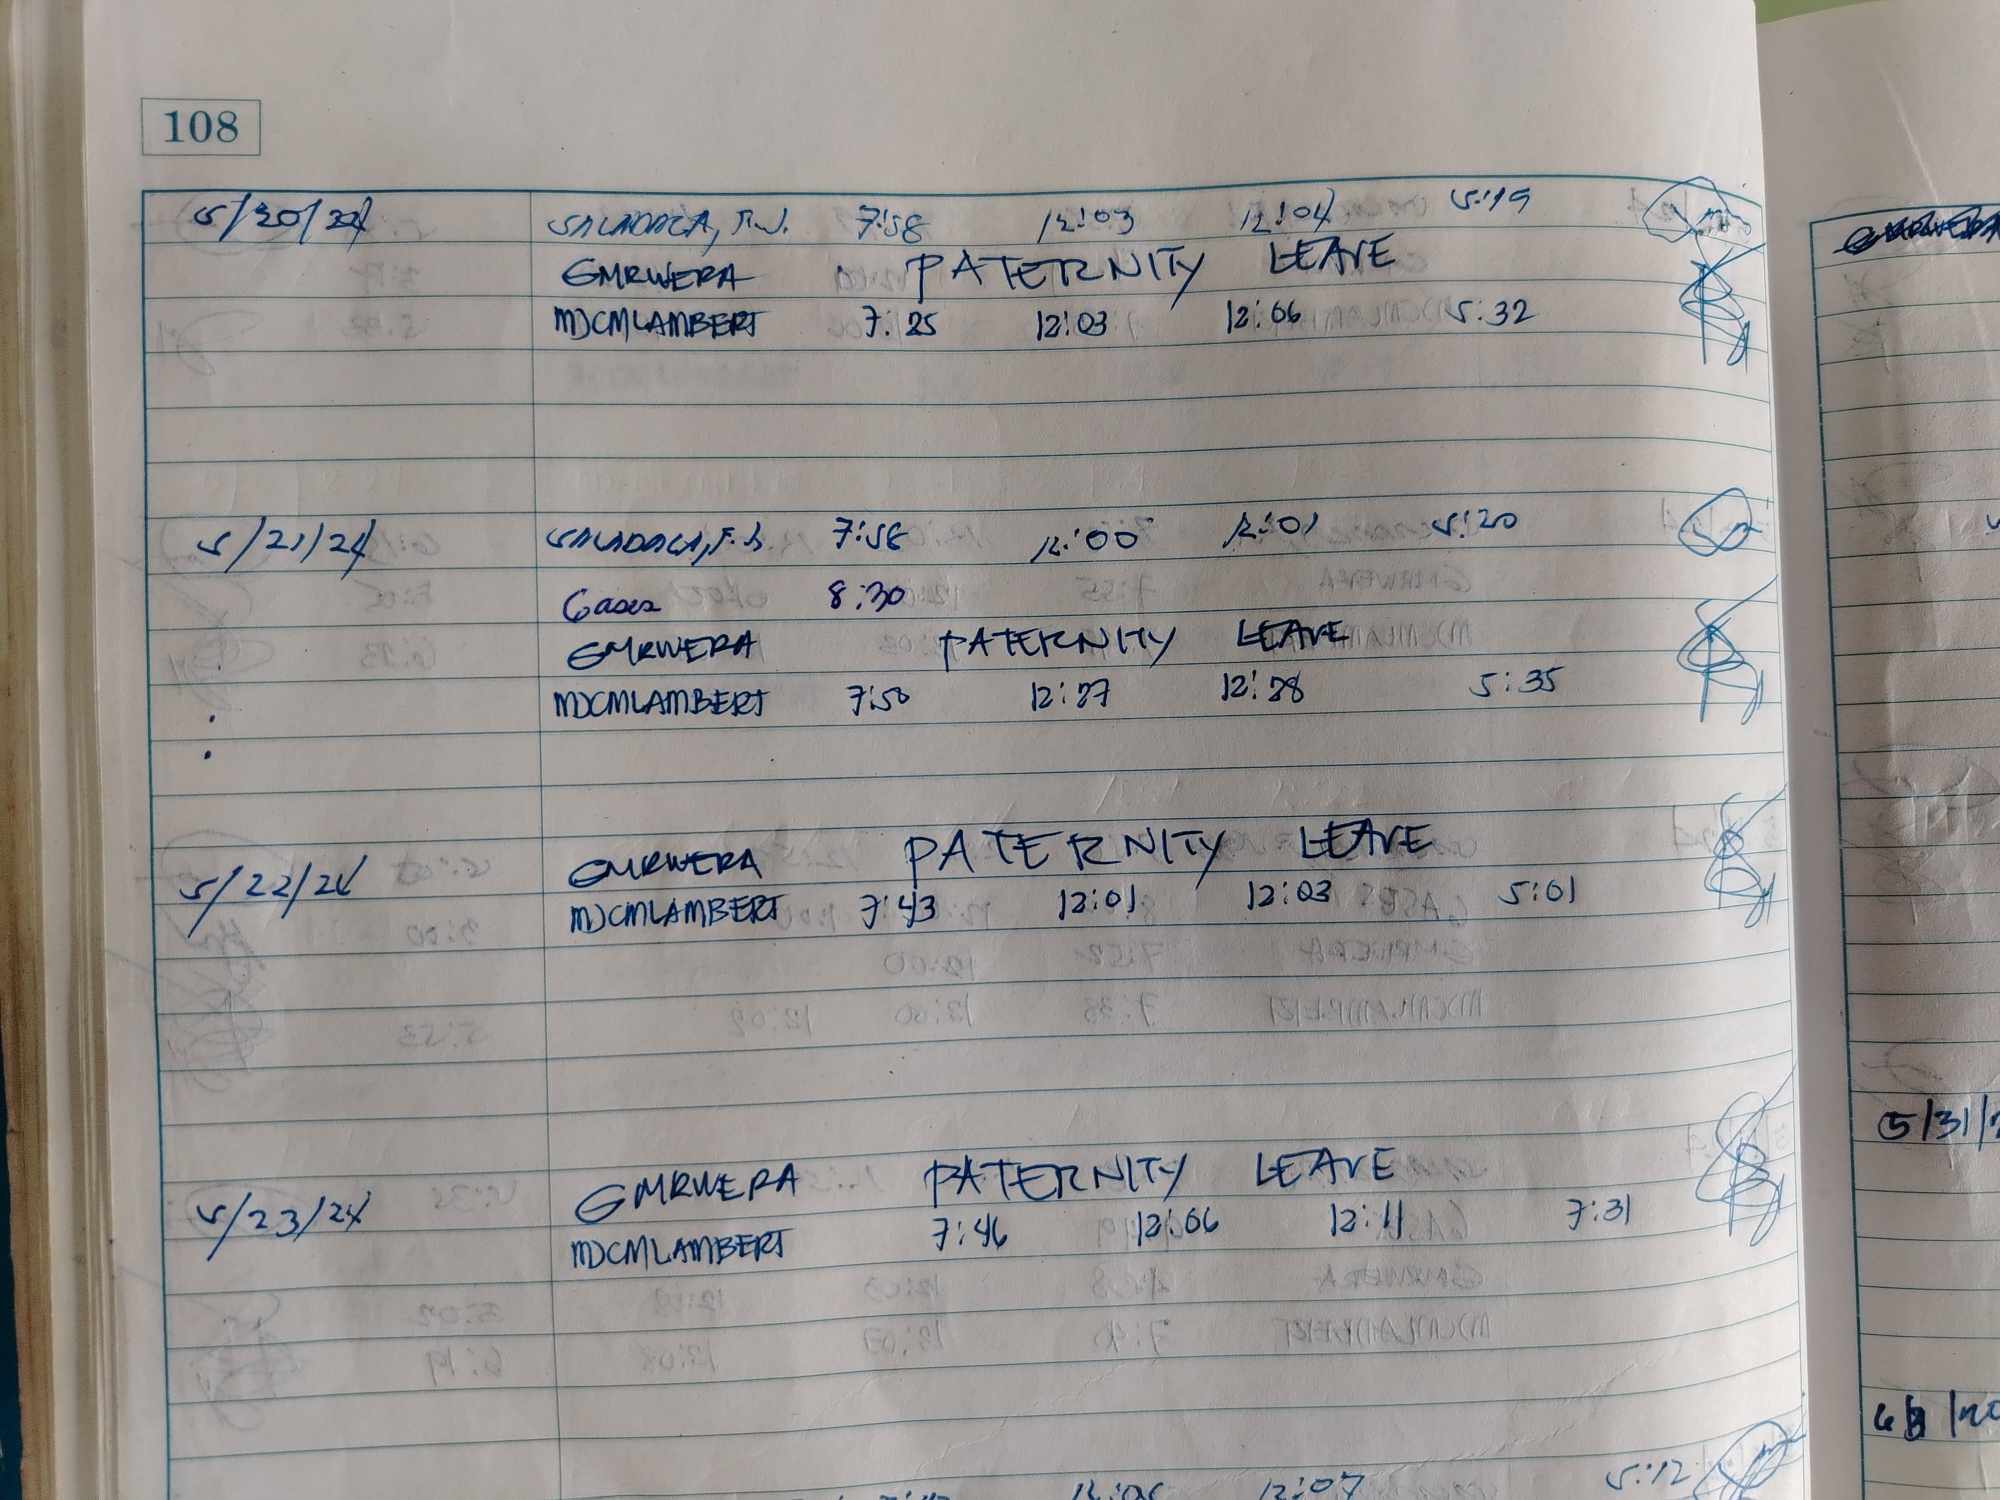 108
5/20/24 SALADAGA, F.J. 7:58 12:03 12:04 5:19
GMRWERA PATERNITY LEAVE
MJCMLAMBERT 7:25 12:03 12:06 5:32
5/21/24 SALADAGA, F.J. 7:58 12:00 12:01 5:20
Gases 8:30
GMRWERA PATERNITY LEAVE
MJCMLAMBERT 7:50 12:27 12:28 5:35
5/22/24 GMRWERA PATERNITY LEAVE
MJCMLAMBERT 7:43 12:01 12:03 5:01
5/23/24 GMRWERA PATERNITY LEAVE
MJCMLAMBERT 7:46 12:06 12:11 7:31
12:06 12:07 5:12
5/31/2